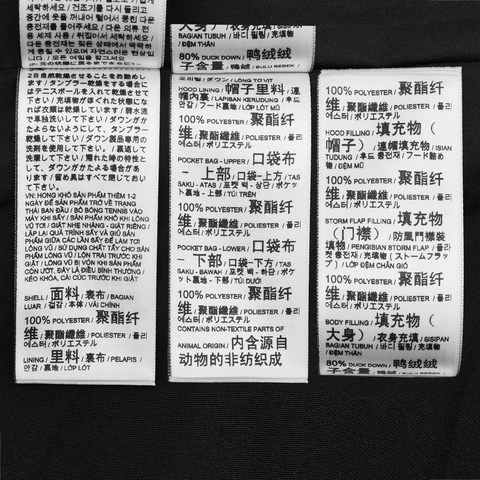 세탁하십시오./건조기를 다시 돌리고
중간에 옷을 꺼내어 털어서 뭉친 다운
충전재를 풀어주세요./다운 의류 전
용 세제 사용/뒤집어서 세탁하세요./
다운 충전재는 젖은 상태에서 딱딱하게
뭉칠 수 있으며 자연스러운 현상입
2日自然乾燥させることをお勧めし
ます。/タンブラー乾燥をする場合に
はテニスボールを入れて乾燥させて
下さい/充填物がほぐれた状態にな
れば次着用して下さい/弱水流
で単独洗いして下さい/ダウンがか
たよらないようにして、タンブラー
乾燥して下さい/ダウン製品専用の
洗剤を使用して下さい。/裏返して
洗濯して下さい/濡れた時の特性と
して、ダウンがかたよる場合があり
ます/留め具はすべて閉じておいて
下さい。
VN: HONG KHÔ SẢN PHẨM THÊM 1-2
NGÀY ĐỂ SẢN PHẨM TRỞ VỀ TRẠNG
THÁI BAN ĐẦU / BỎ BÓNG TENNIS VÀO
MÁY KHI SẤY / SẢN PHẨM KHÔ KHI LÔNG
VŨ TƠI / GIẶT NHẸ NHÀNG - GIẶT RIÊNG /
LẶP LẠI QUÁ TRÌNH SẤY VÀ GIŨ SẢN
PHẨM GIỮA CÁC LẦN SẤY ĐỂ LÀM TƠI
LÔNG VŨ / SỬ DỤNG CHẤT TẨY CHO SẢN
PHẨM LÔNG VŨ / LỘN TRÁI TRƯỚC KHI
GIẶT / LÔNG VŨ BỊ VÓN CỤC KHI SẢN PHẨM
CÒN ƯỚT, ĐÂY LÀ ĐIỀU BÌNH THƯỜNG /
KÉO KHÓA, CÀI CÚC TRƯỚC KHI GIẶT
SHELL / 面料 / 表布 / BAGIAN
LUAR / 겉감 / 本体 / VẢI CHÍNH
100% POLYESTER / 聚酯纤
维 / 聚酯纖維 / POLIESTER / 폴리
에스터 / ポリエステル
LINING / 里料 / 裏布 / PELAPIS /
안감 / 裏地 / LỚP LÓT
오리털 / ダウン / LÔNG TƠ VỊT
HOOD LINING / 帽子里料 / 連
帽內裏 / LAPISAN KERUDUNG / 후드
안감 / フード裏地 / LỚP LÓT MŨ
100% POLYESTER / 聚酯纤
维 / 聚酯纖維 / POLIESTER / 폴리
에스터 / ポリエステル
POCKET BAG - UPPER / 口袋布
- 上部 / 口袋-上方 / TAS
SAKU - ATAS / 포켓 백 - 상단 / ポケッ
ト裏地 - 上部 / TÚI TRÊN
100% POLYESTER / 聚酯纤
维 / 聚酯纖維 / POLIESTER / 폴리
에스터 / ポリエステル
POCKET BAG - LOWER / 口袋布
- 下部 / 口袋-下方 / TAS
SAKU - BAWAH / 포켓 백 - 하단 / ポケッ
ト裏地 - 下部 / TÚI DƯỚI
100% POLYESTER / 聚酯纤
维 / 聚酯纖維 / POLIESTER / 폴리
에스터 / ポリエステル
CONTAINS NON-TEXTILE PARTS OF
ANIMAL ORIGIN / 内含源自
动物的非纺织成
大身) / 衣身充填 / SISIPAN
BAGIAN TUBUH / 바디 필링 / 充填物
/ ĐỆM THÂN
80% DUCK DOWN / 鸭绒绒
子含量 / 鴨絨 / BULU BEBEK /
100% POLYESTER / 聚酯纤
维 / 聚酯纖維 / POLIESTER / 폴리
에스터 / ポリエステル
HOOD FILLING / 填充物(
帽子) / 連帽充填 / ISIAN
TUDUNG / 후드 충전재 / フード詰め物
/ ĐỆM MŨ
100% POLYESTER / 聚酯纤
维 / 聚酯纖維 / POLIESTER / 폴리
에스터 / ポリエステル
STORM FLAP FILLING / 填充物
(门襟) / 防風門襟裝
填物 / PENGISIAN STORM FLAP / 플라
켓 충전재 / 充填物(ストームフラッ
プ) / LỚP ĐỆM CHẮN GIÓ
100% POLYESTER / 聚酯纤
维 / 聚酯纖維 / POLIESTER / 폴리
에스터 / ポリエステル
BODY FILLING / 填充物(
大身) / 衣身充填 / SISIPAN
BAGIAN TUBUH / 바디 필링 / 充填物
/ ĐỆM THÂN
80% DUCK DOWN / 鸭绒绒
子含量 / 鴨絨 / BULU BEBEK /